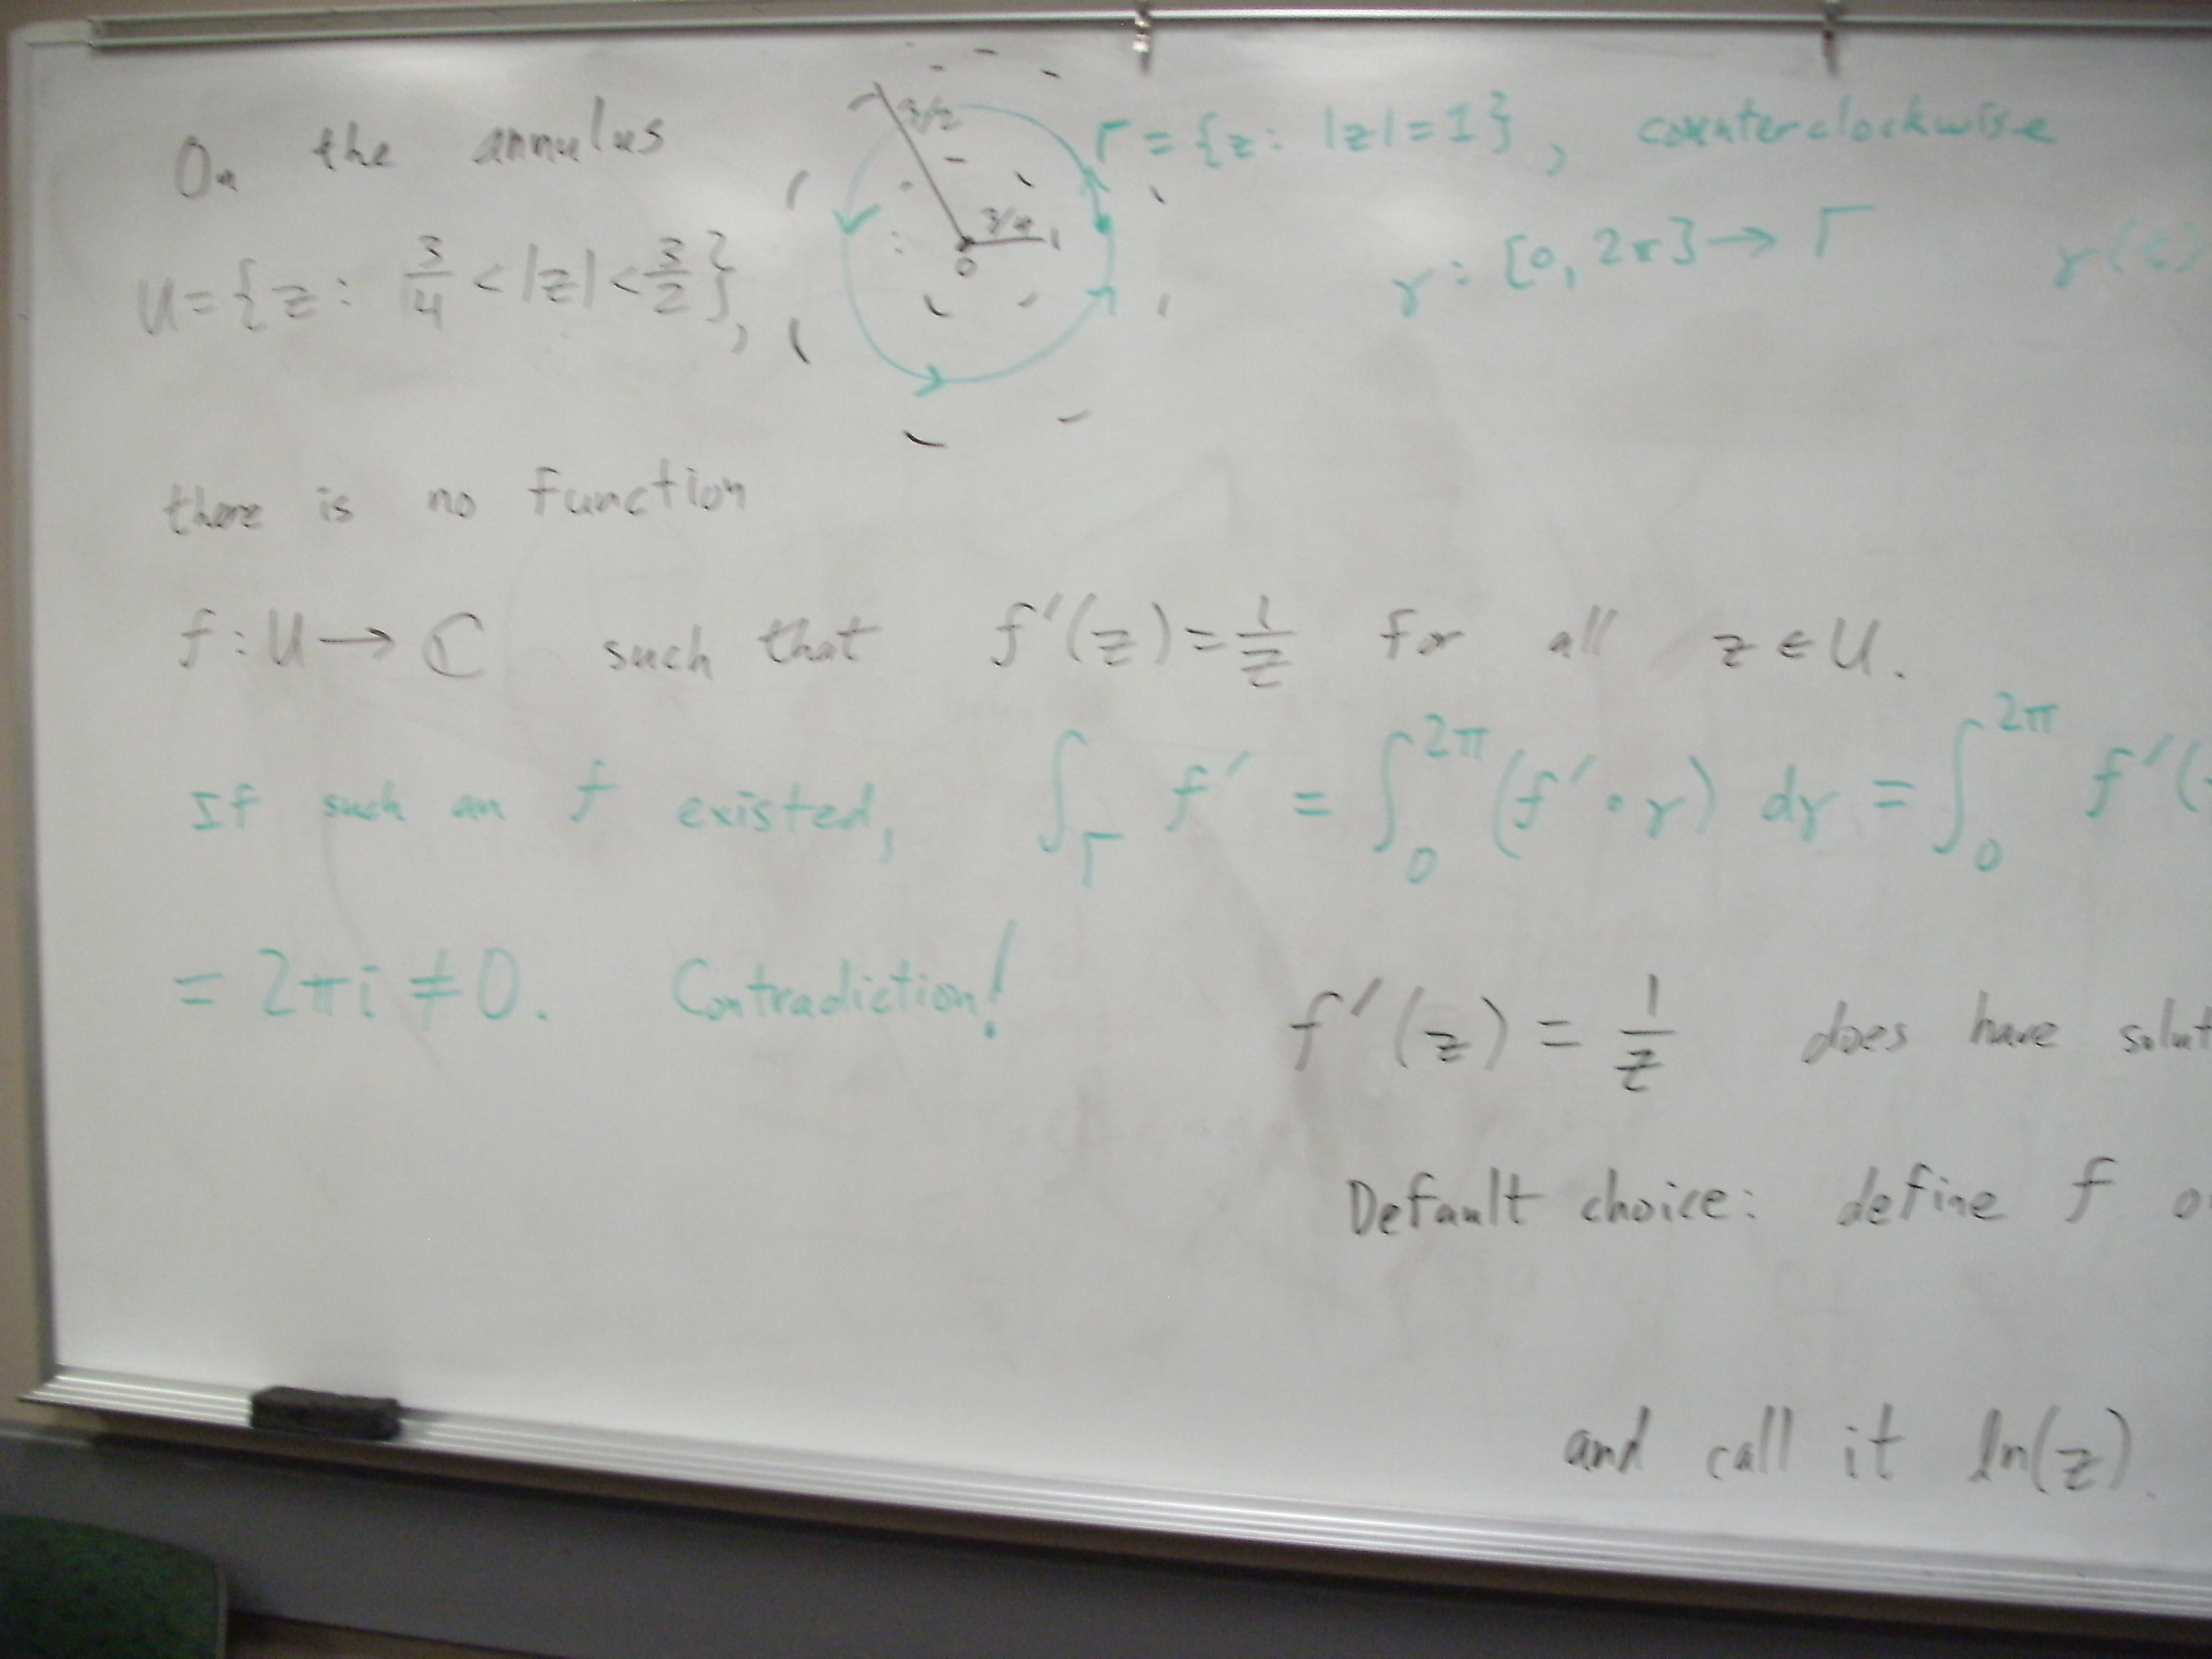 On the annulus
U = {z: 3/4 < |z| < 3/2},
3/2
3/4
0
Γ = {z: |z| = 1}, counterclockwise
γ: [0, 2π] → Γ γ(t)
there is no function
f: U → ℂ such that f′(z) = 1/z for all z ∈ U.
If such an f existed, ∫_Γ f′ = ∫_0^{2π} (f′∘γ) dγ = ∫_0^{2π} f′(
= 2πi ≠ 0. Contradiction!
f′(z) = 1/z does have solut
Default choice: define f o
and call it ln(z).